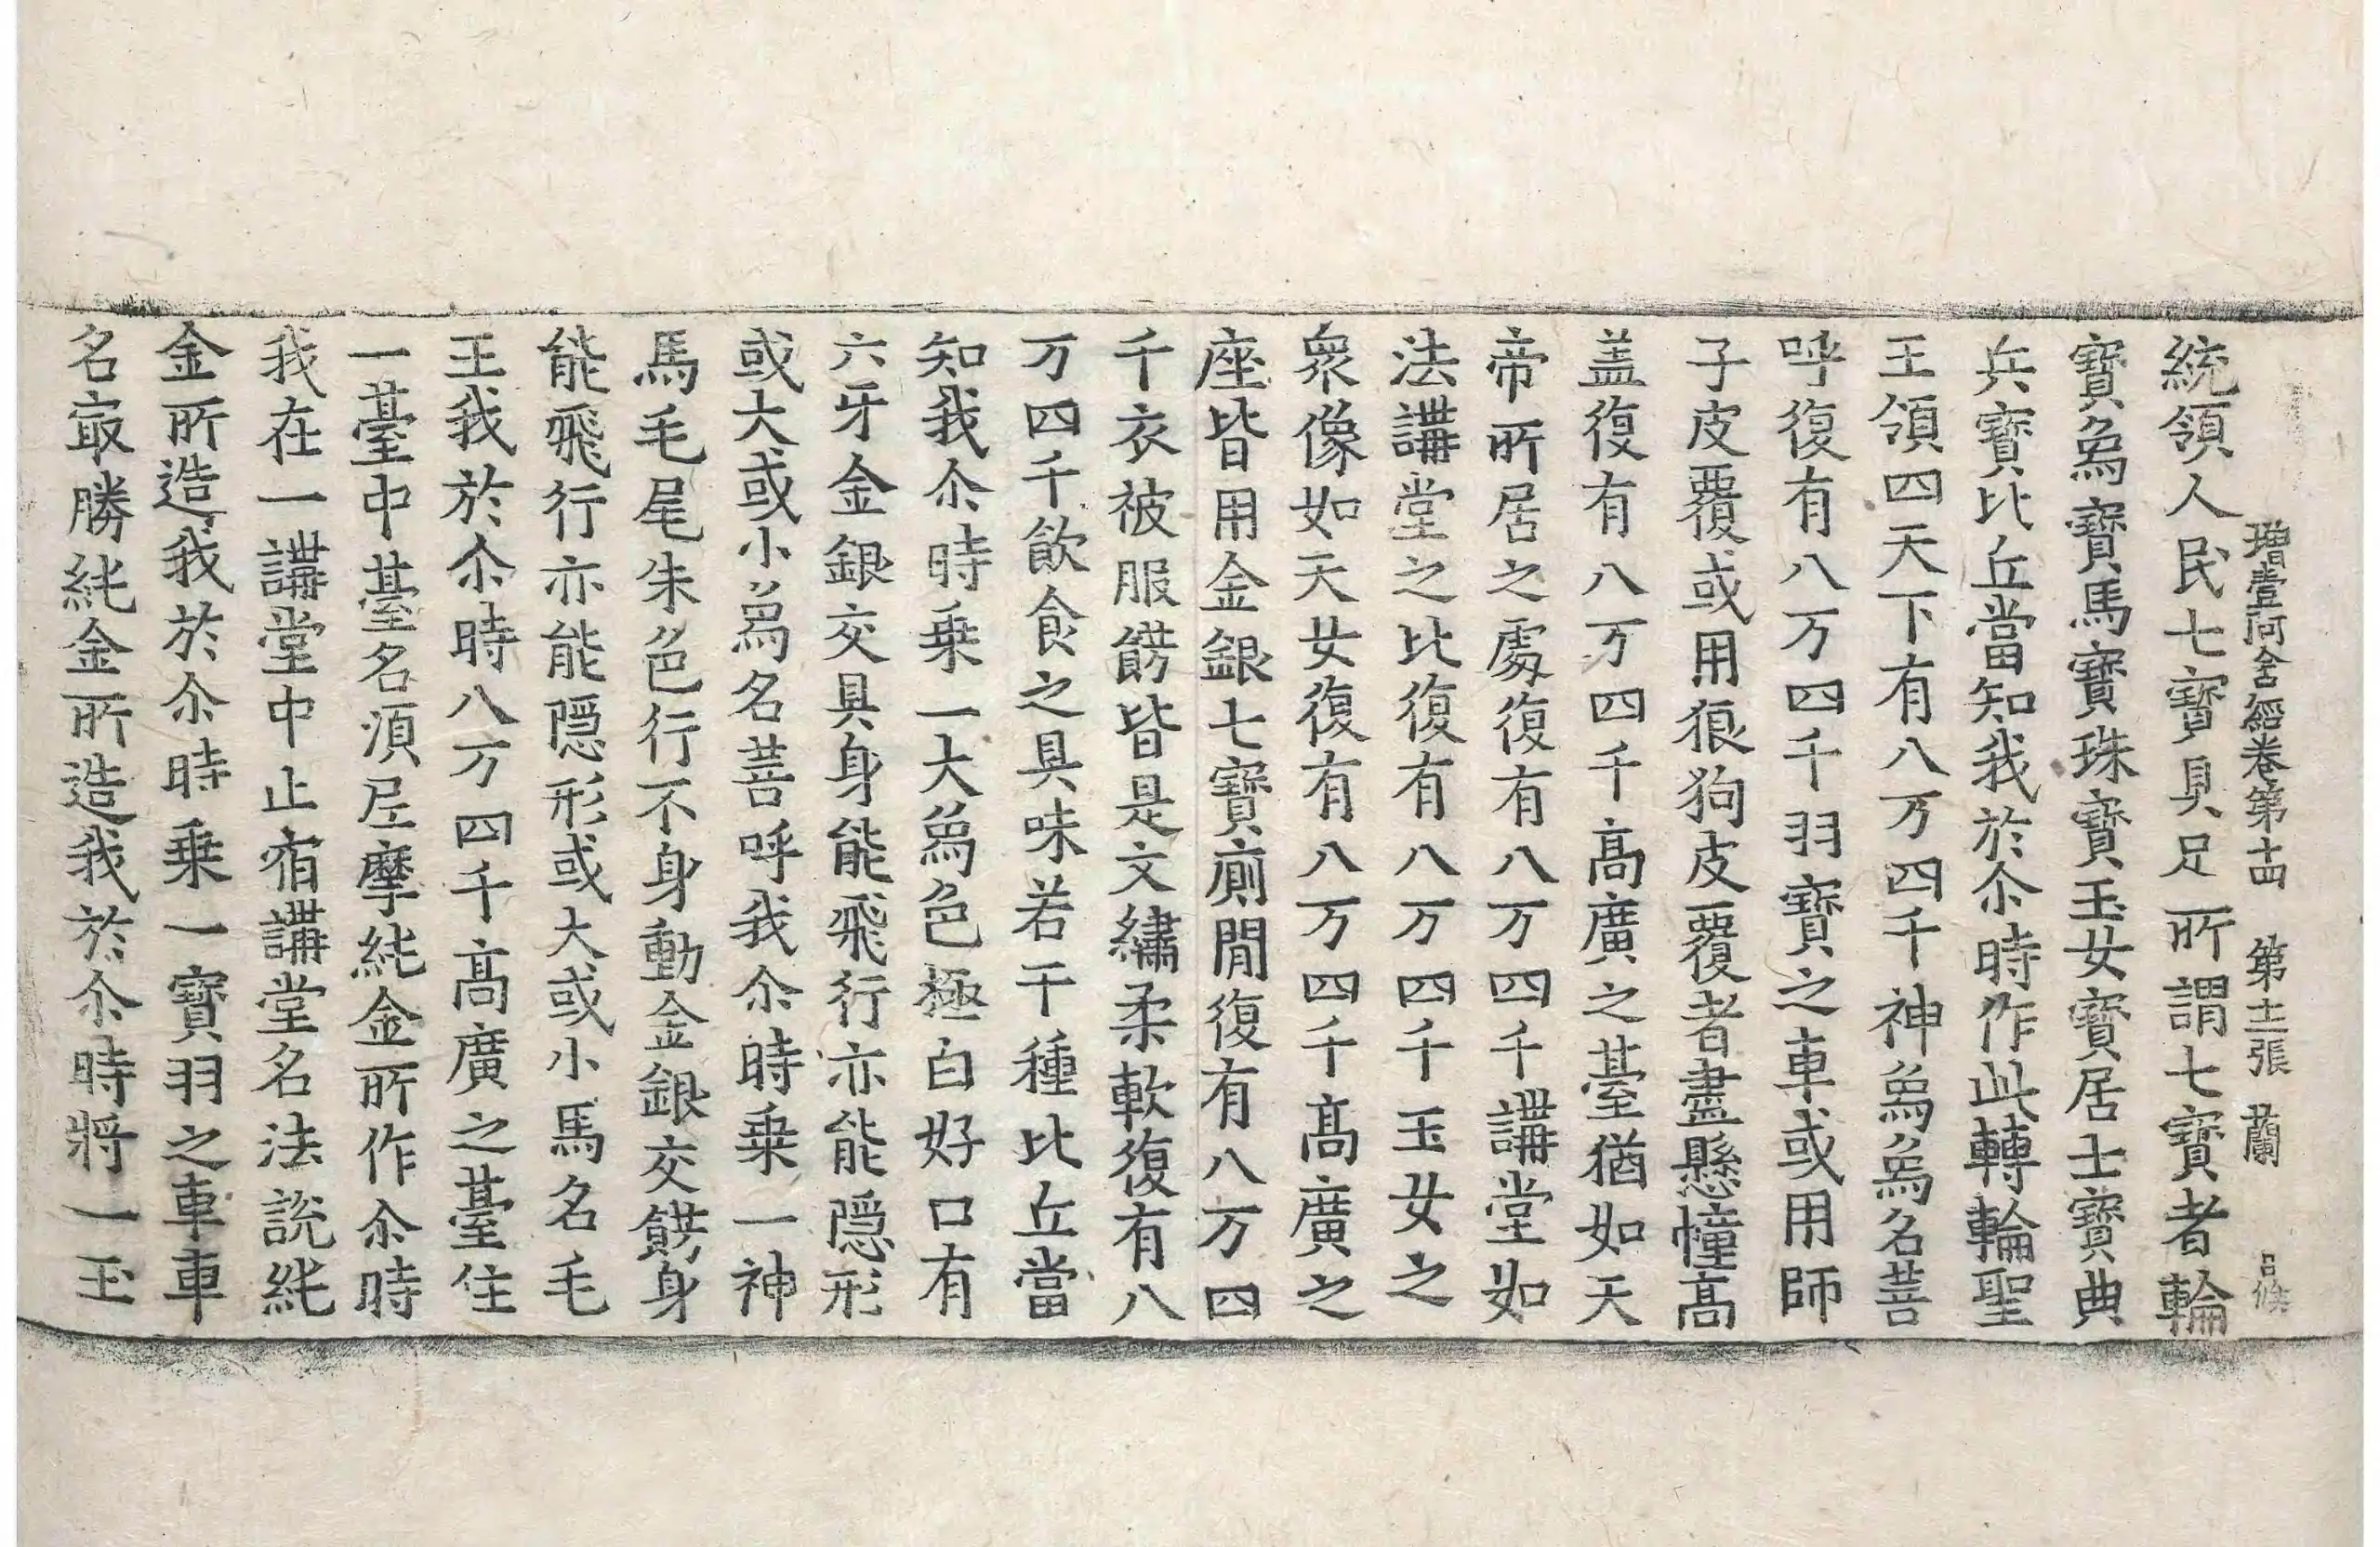 增壹阿含經卷第十四 第十二張 蘭 呂侯
統領人民七寶具足所謂七寶者輪
寶為寶馬寶珠寶玉女寶居士寶典
兵寶比丘當知我於尒時作此轉輪聖
王領四天下有八万四千神為為名菩
呼復有八万四千羽寶之車或用師
子皮覆或用狼狗皮覆者盡懸幢高
盖復有八万四千高廣之臺猶如天
帝所居之處復有八万四千講堂如
法講堂之比復有八万四千玉女之
衆像如天女復有八万四千高廣之
座皆用金銀七寶廁間復有八万四
千衣被服餝皆是文繡柔軟復有八
万四千飲食之具味若干種比丘當
知我尒時乗一大為色極白好口有
六牙金銀交具身能飛行亦能隱形
或大或小為名菩呼我尒時乗一神
馬毛尾朱色行不身動金銀交餝身
能飛行亦能隱形或大或小馬名毛
王我於尒時八万四千高廣之臺住
一臺中臺名湏尼摩純金所作尒時
我在一講堂中止宿講堂名法說純
金所造我於尒時乗一寶羽之車車
名冣勝純金所造我於尒時將一玉